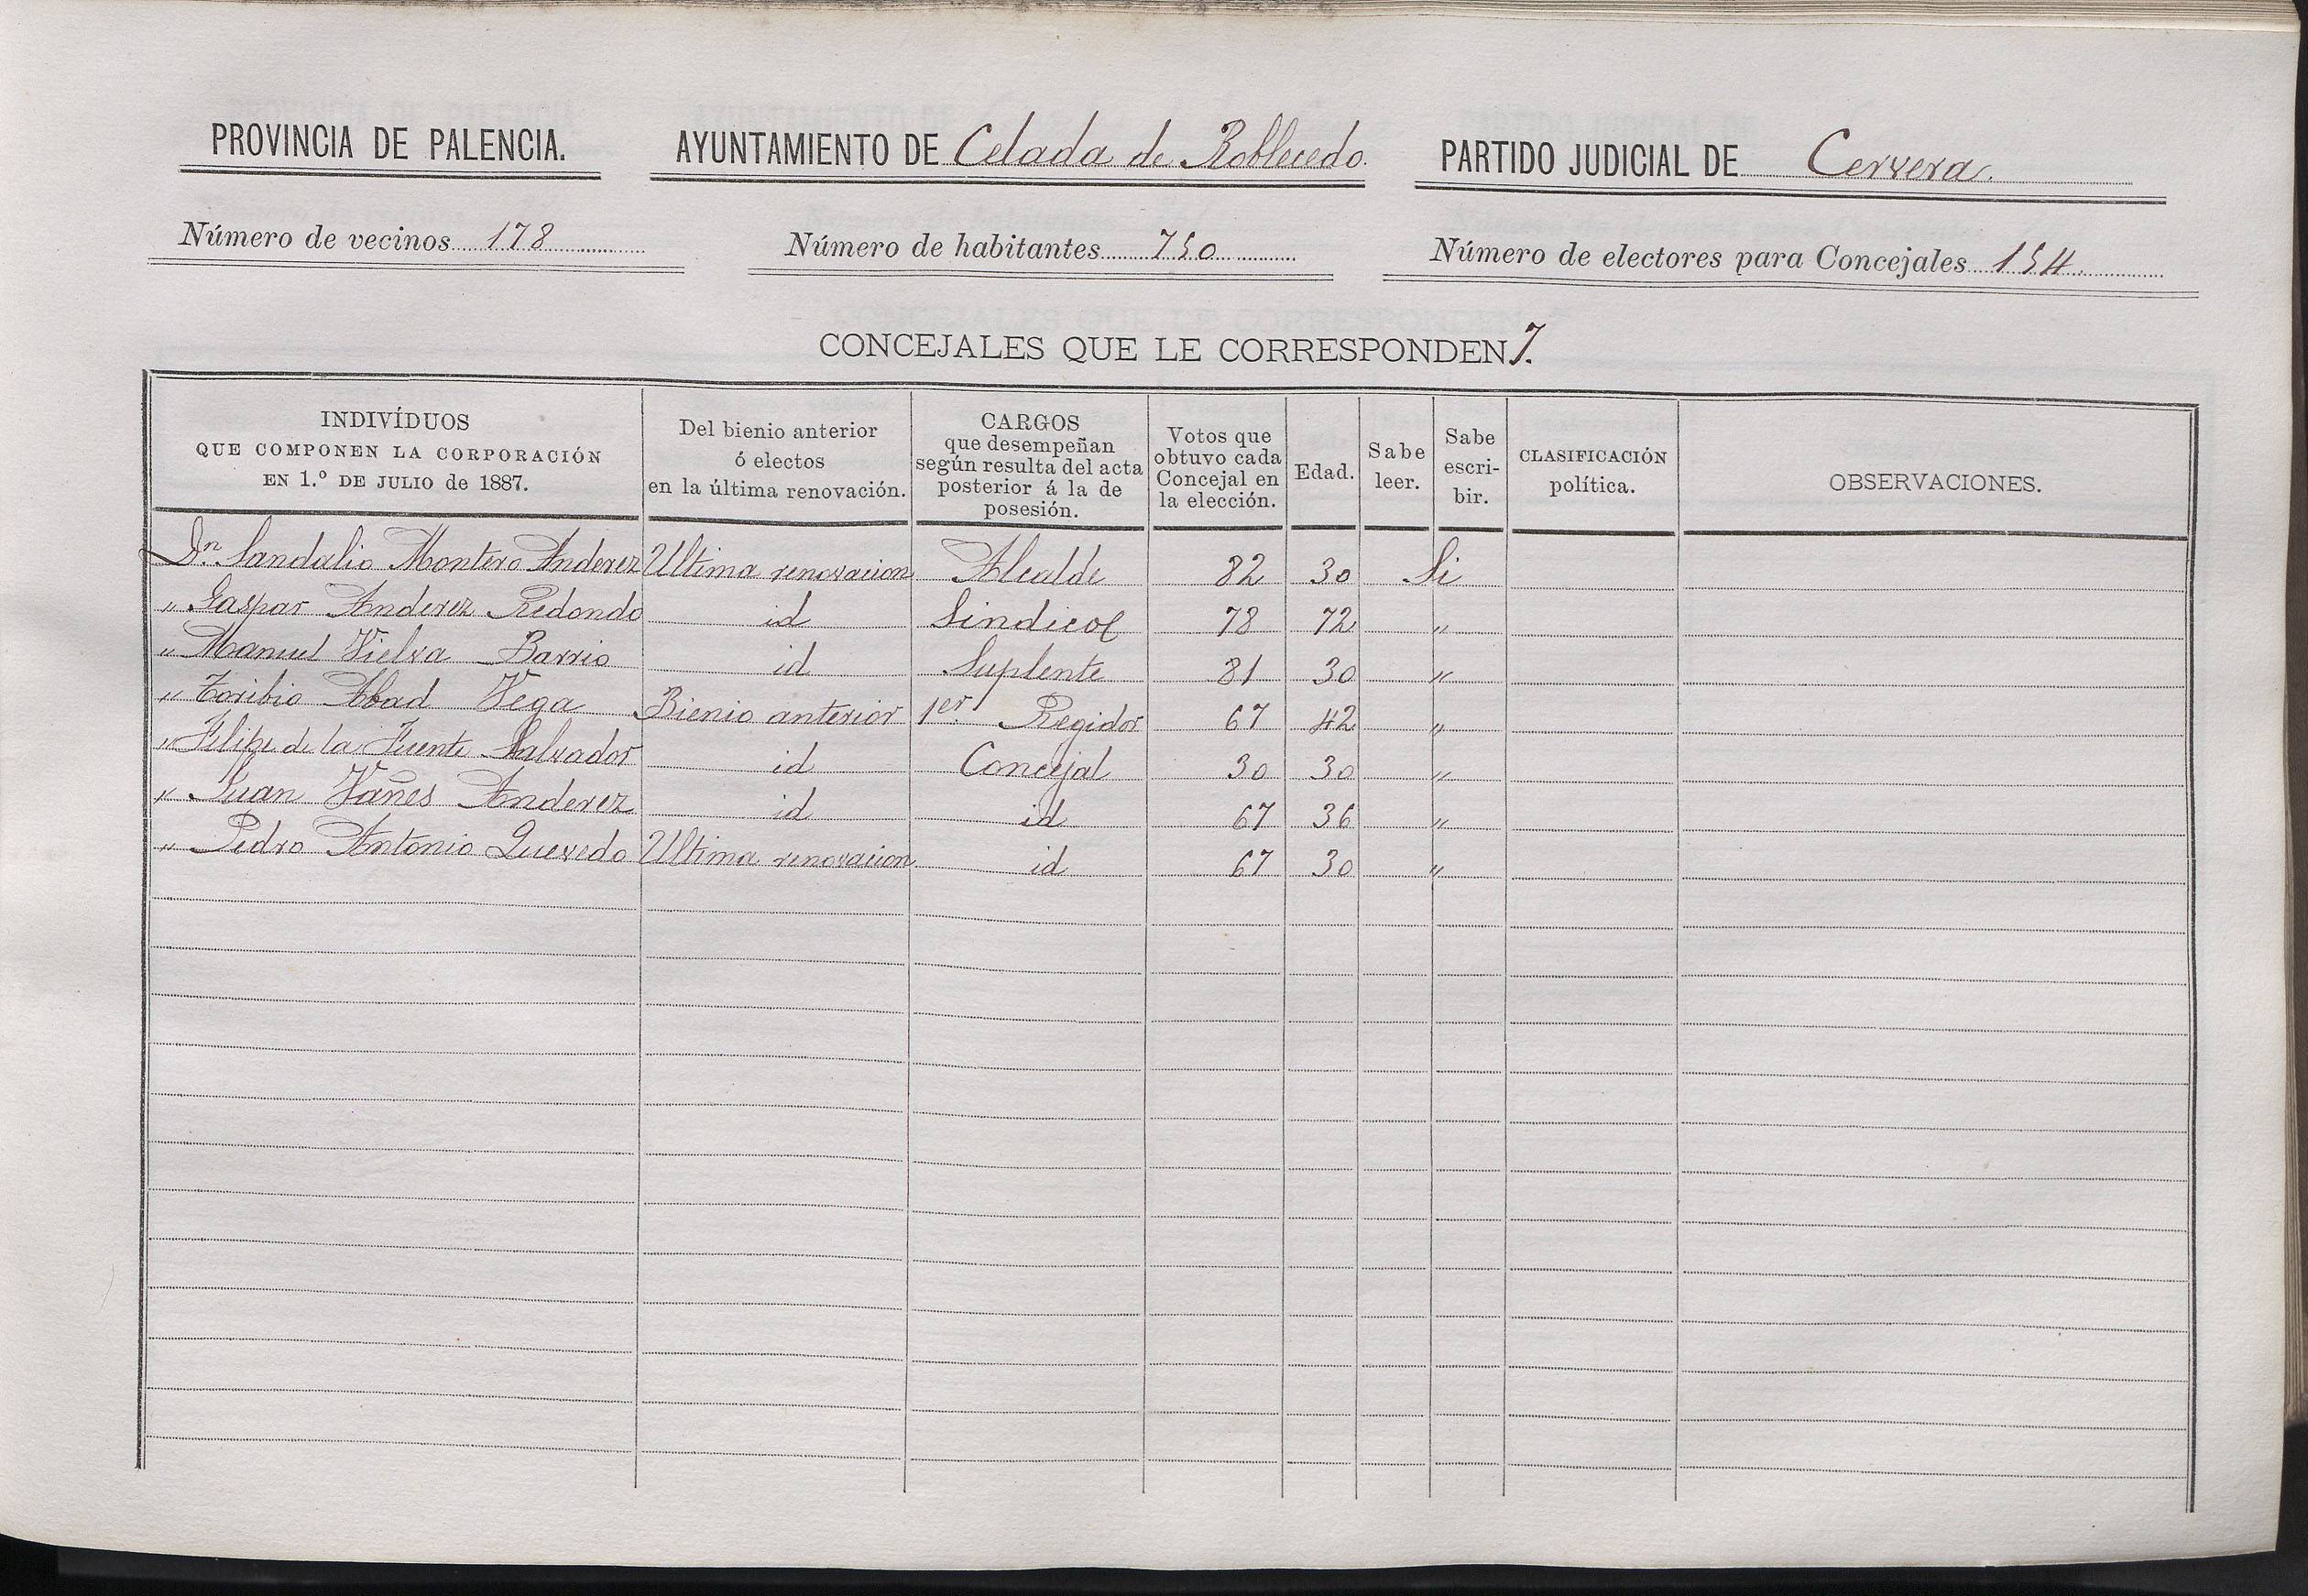 PROVINCIA DE PALENCIA. AYUNTAMIENTO DE Celada de Roblecedo. PARTIDO JUDICIAL DE Cervera.
Número de vecinos 178 Número de habitantes 750 Número de electores para Concejales 154
CONCEJALES QUE LE CORRESPONDEN 7.
INDIVÍDUOS
QUE COMPONEN LA CORPORACIÓN
EN 1.º DE JULIO de 1887.
Del bienio anterior
ó electos
en la última renovación.
CARGOS
que desempeñan
según resulta del acta
posterior á la de
posesión.
Votos que
obtuvo cada
Concejal en
la elección.
Edad.
Sabe
leer.
Sabe
escri-
bir.
CLASIFICACIÓN
política.
OBSERVACIONES.
Dn. Sandalio Montero Anderez Ultima renovacion Alcalde 82 30 Si
" Gaspar Anderez Redondo id Sindico 78 72 "
" Manuel Vielva Barrio id Suplente 81 30 "
" Toribio Abad Vega Bienio anterior 1er. Regidor 67 42 "
" Felipe de la Fuente Salvador id Concejal 30 30 "
" Juan Vañes Anderez id id 67 36 "
" Pedro Antonio Quevedo Ultima renovacion id 67 30 "